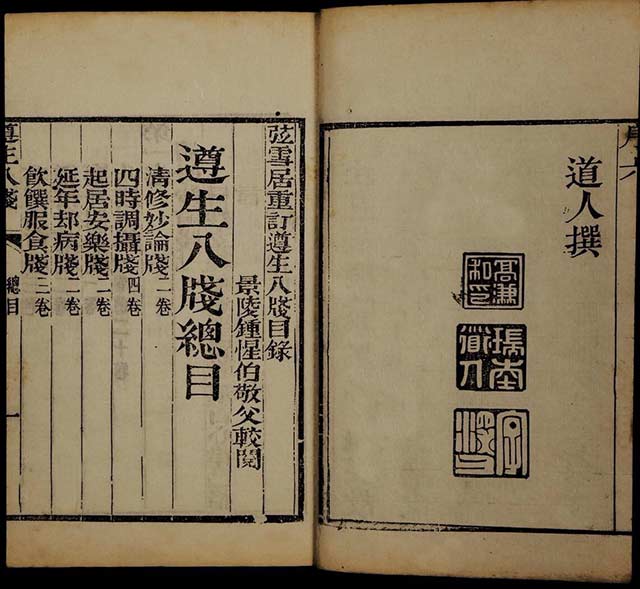 序六
道人撰
高濂
瑞南道人
弦雪居重訂遵生八牋目錄
景陵鍾惺伯敬父較閱
遵生八牋總目
清修妙論牋二卷
四時調攝牋四卷
起居安樂牋二卷
延年却病牋二卷
飲饌服食牋三卷
遵生八牋 總目 一